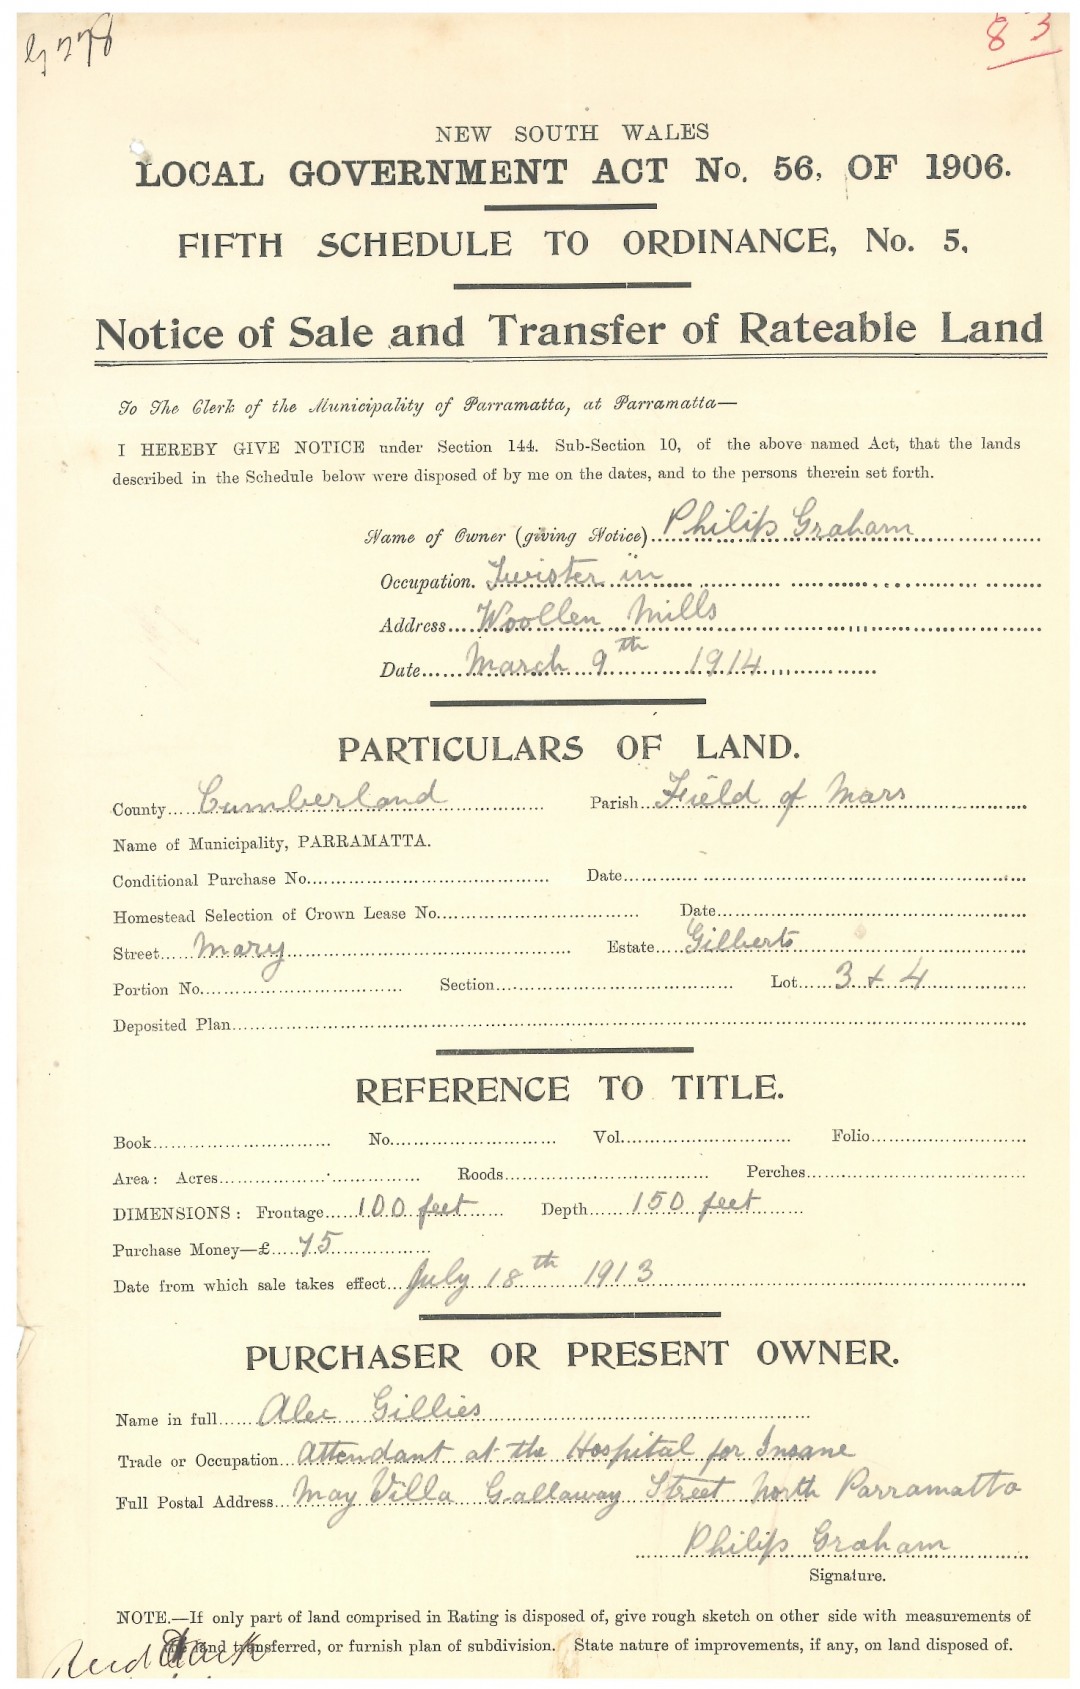 83
NEW SOUTH WALES
LOCAL GOVERNMENT ACT No. 56, OF 1906.
FIFTH SCHEDULE TO ORDINANCE, No. 5,
Notice of Sale and Transfer of Rateable Land
To The Clerk of the Municipality of Parramatta, at Parramatta—
I HEREBY GIVE NOTICE under Section 144. Sub-Section 10, of the above named Act, that the lands
described in the Schedule below were disposed of by me on the dates, and to the persons therein set forth.
Name of Owner (giving Notice) Philip Graham
Occupation. Twister in
Address Woollen Mills
Date March 9th 1914
PARTICULARS OF LAND.
County Cumberland Parish Field of Mars
Name of Municipality, PARRAMATTA.
Conditional Purchase No. Date
Homestead Selection of Crown Lease No. Date
Street Mary Estate Gilberts
Portion No. Section Lot 3 + 4
Deposited Plan
REFERENCE TO TITLE.
Book No. Vol. Folio
Area: Acres Roods Perches
DIMENSIONS: Frontage 100 feet Depth 150 feet
Purchase Money—£ 75
Date from which sale takes effect July 18th 1913
PURCHASER OR PRESENT OWNER.
Name in full Alec Gillies
Trade or Occupation Attendant at the Hospital for Insane
Full Postal Address May Villa Gallaway Street North Parramatta
Philip Graham
Signature.
NOTE.—If only part of land comprised in Rating is disposed of, give rough sketch on other side with measurements of
the land transferred, or furnish plan of subdivision. State nature of improvements, if any, on land disposed of.